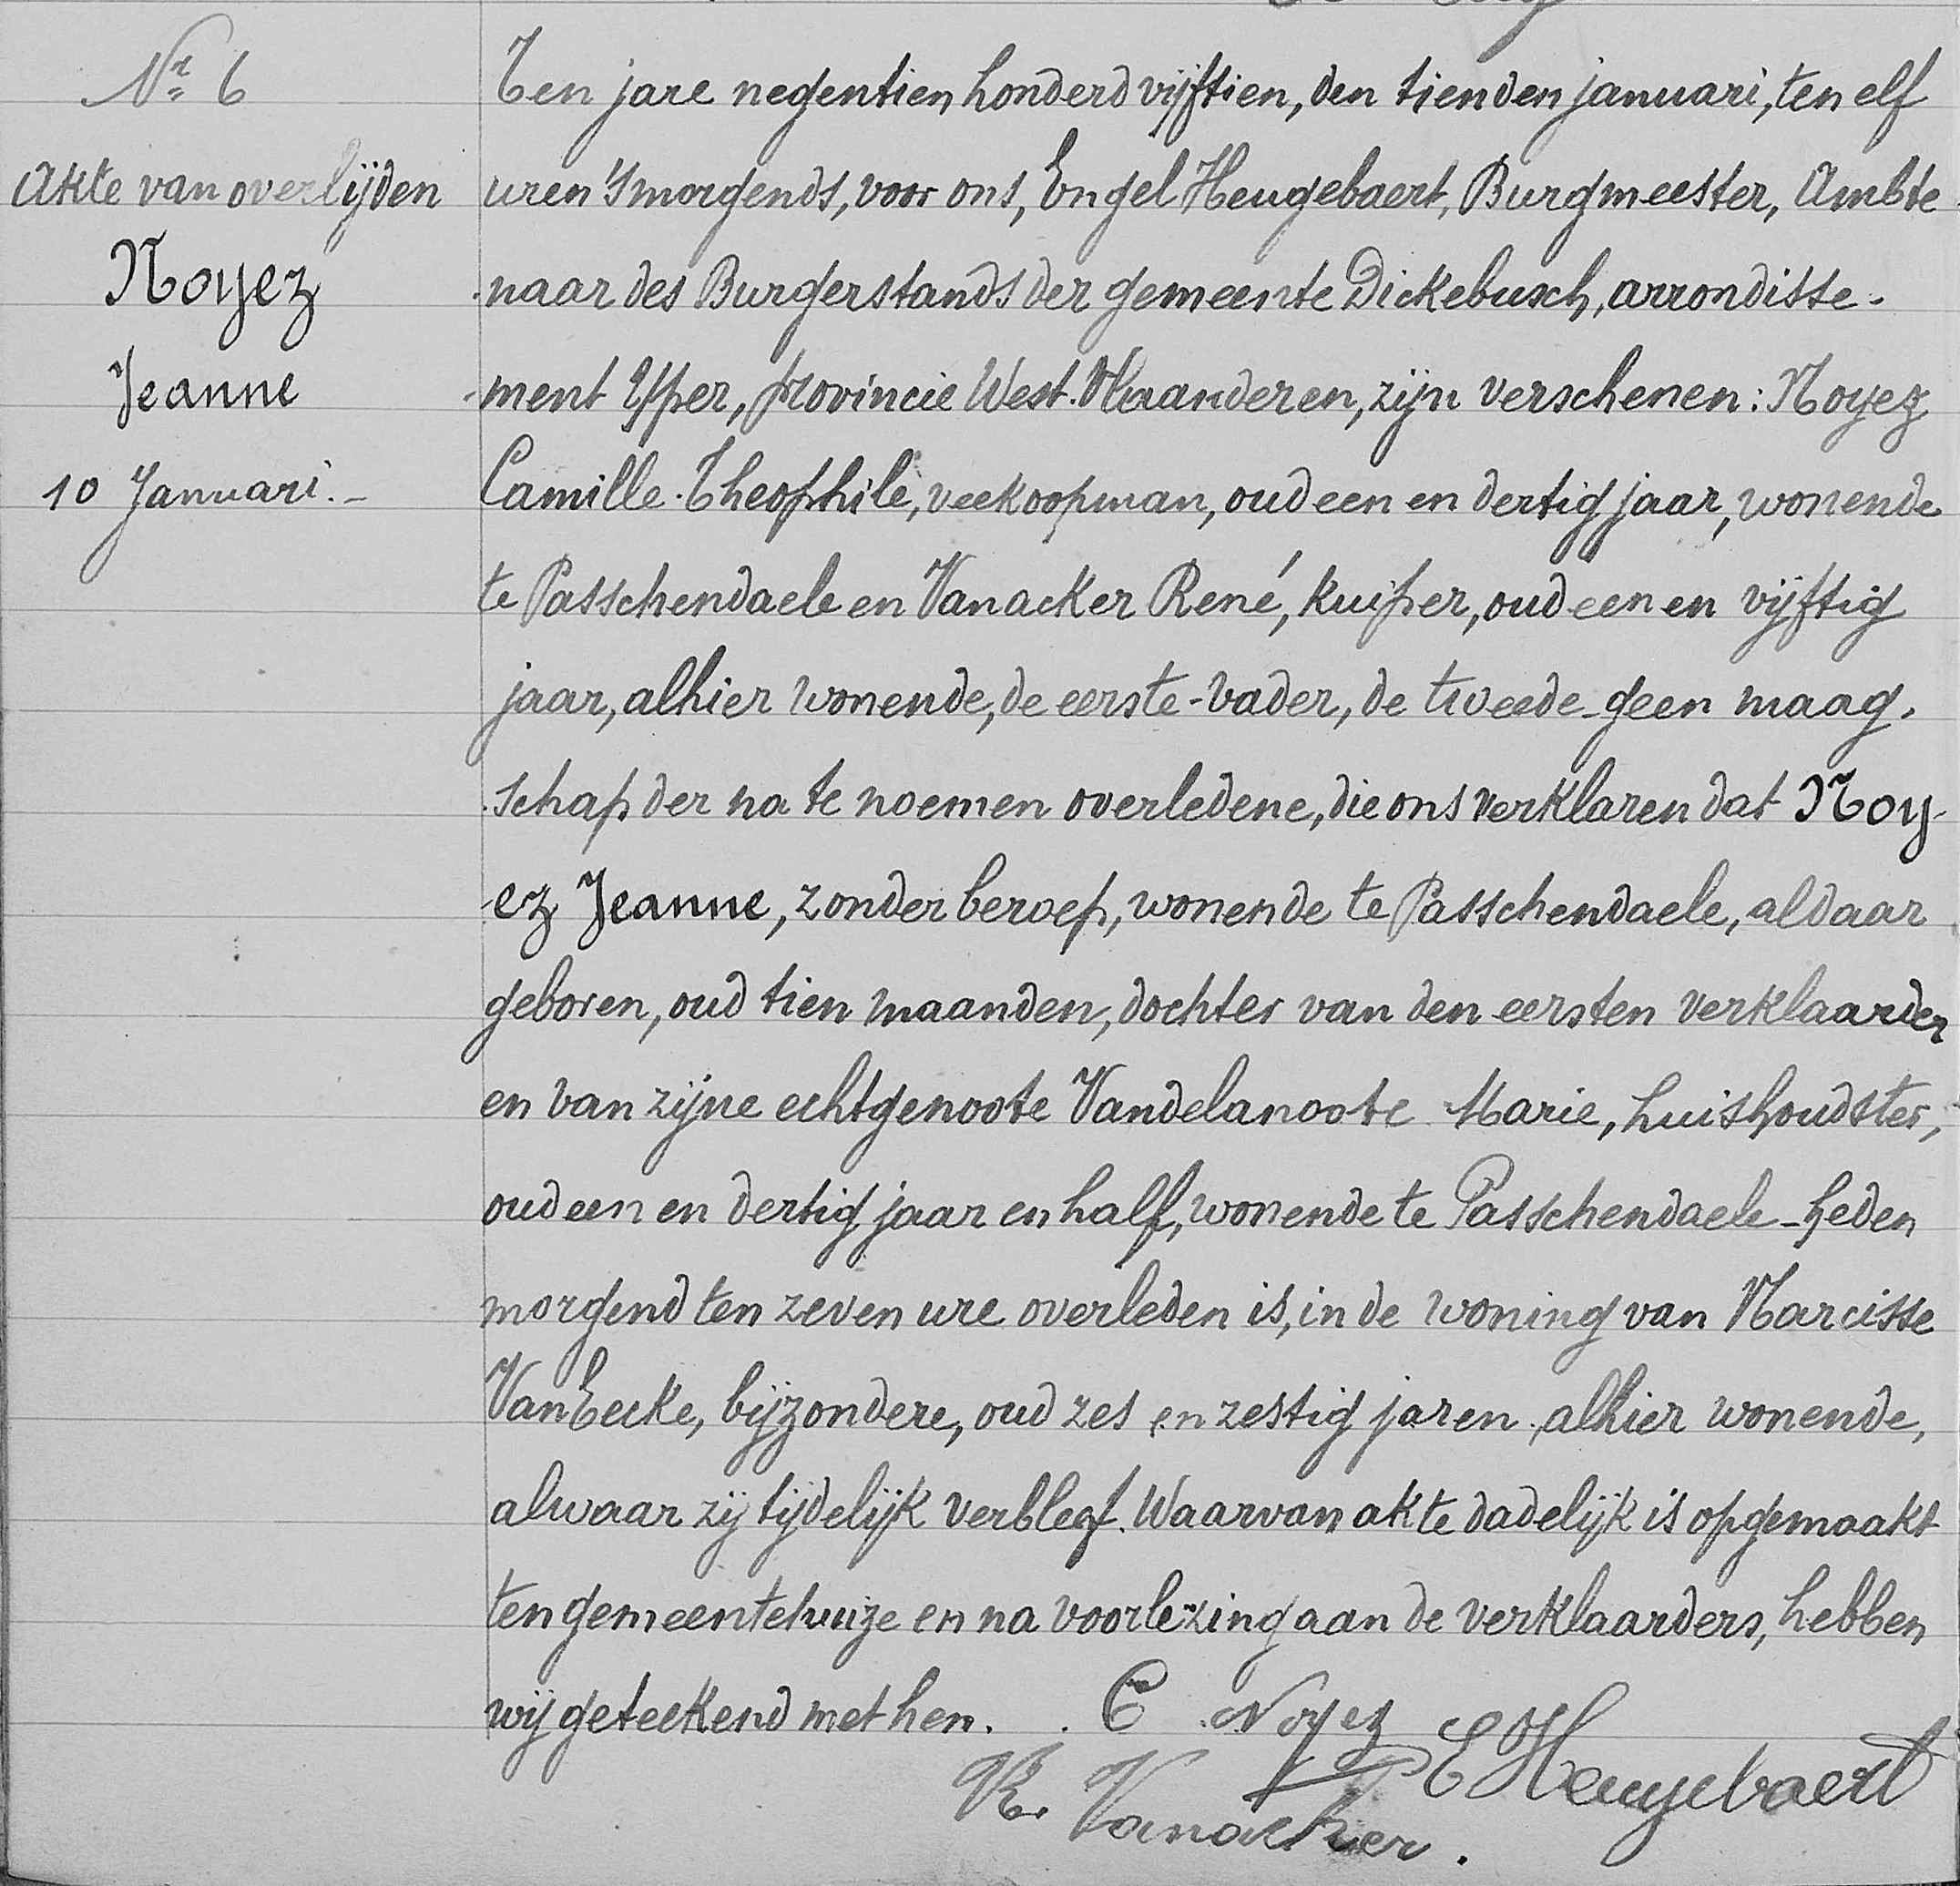 Nr 6
Akte van overlijden
Noyez
Jeanne
10 Januari.-
Ten jare negentien honderd vijftien, den tienden januari, ten elf
uren 'smorgends, voor ons, Engel Heugebaert, Burgmeester, Ambte-
-naar des Burgerstands der gemeente Dickebusch, arrondisse-
-ment Yper, provincie West-Vlaanderen, zijn verschenen: Noyez
Camille-Theophile, veekoopman, oud een en dertig jaar, wonende
te Passchendaele en Vanacker René, kuiper, oud een en vijftig
jaar, alhier wonende, de eerste-vader, de tweede-geen maag-
-schap der na te noemen overledene, die ons verklaren dat Noy-
-ez Jeanne, zonder beroep, wonende te Passchendaele, aldaar
geboren, oud tien maanden, dochter van den eersten verklaarder
en van zijne echtgenoote Vandelanoote Marie, huishoudster,
oud een en dertig jaar en half, wonende te Passchendaele-heden
morgend ten zeven ure overleden is, in de woning van Narcisse
VanEecke, bijzondere, oud zes en zestig jaren, alhier wonende,
alwaar zij tijdelijk verbleef. Waarvan akte dadelijk is opgemaakt
ten gemeentehuize en na voorlezing aan de verklaarders, hebben
wij geteekend met hen. C Noyez
E Heugebaert
R. Vanacker.